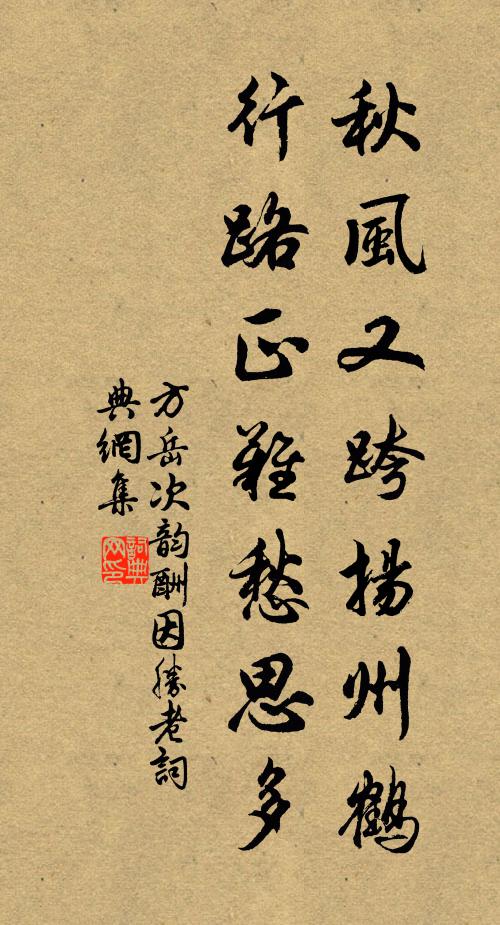 秋風又跨揚州鶴
行路正難愁思多
方岳次韵酬因勝老詞
典網集
詞典
网印